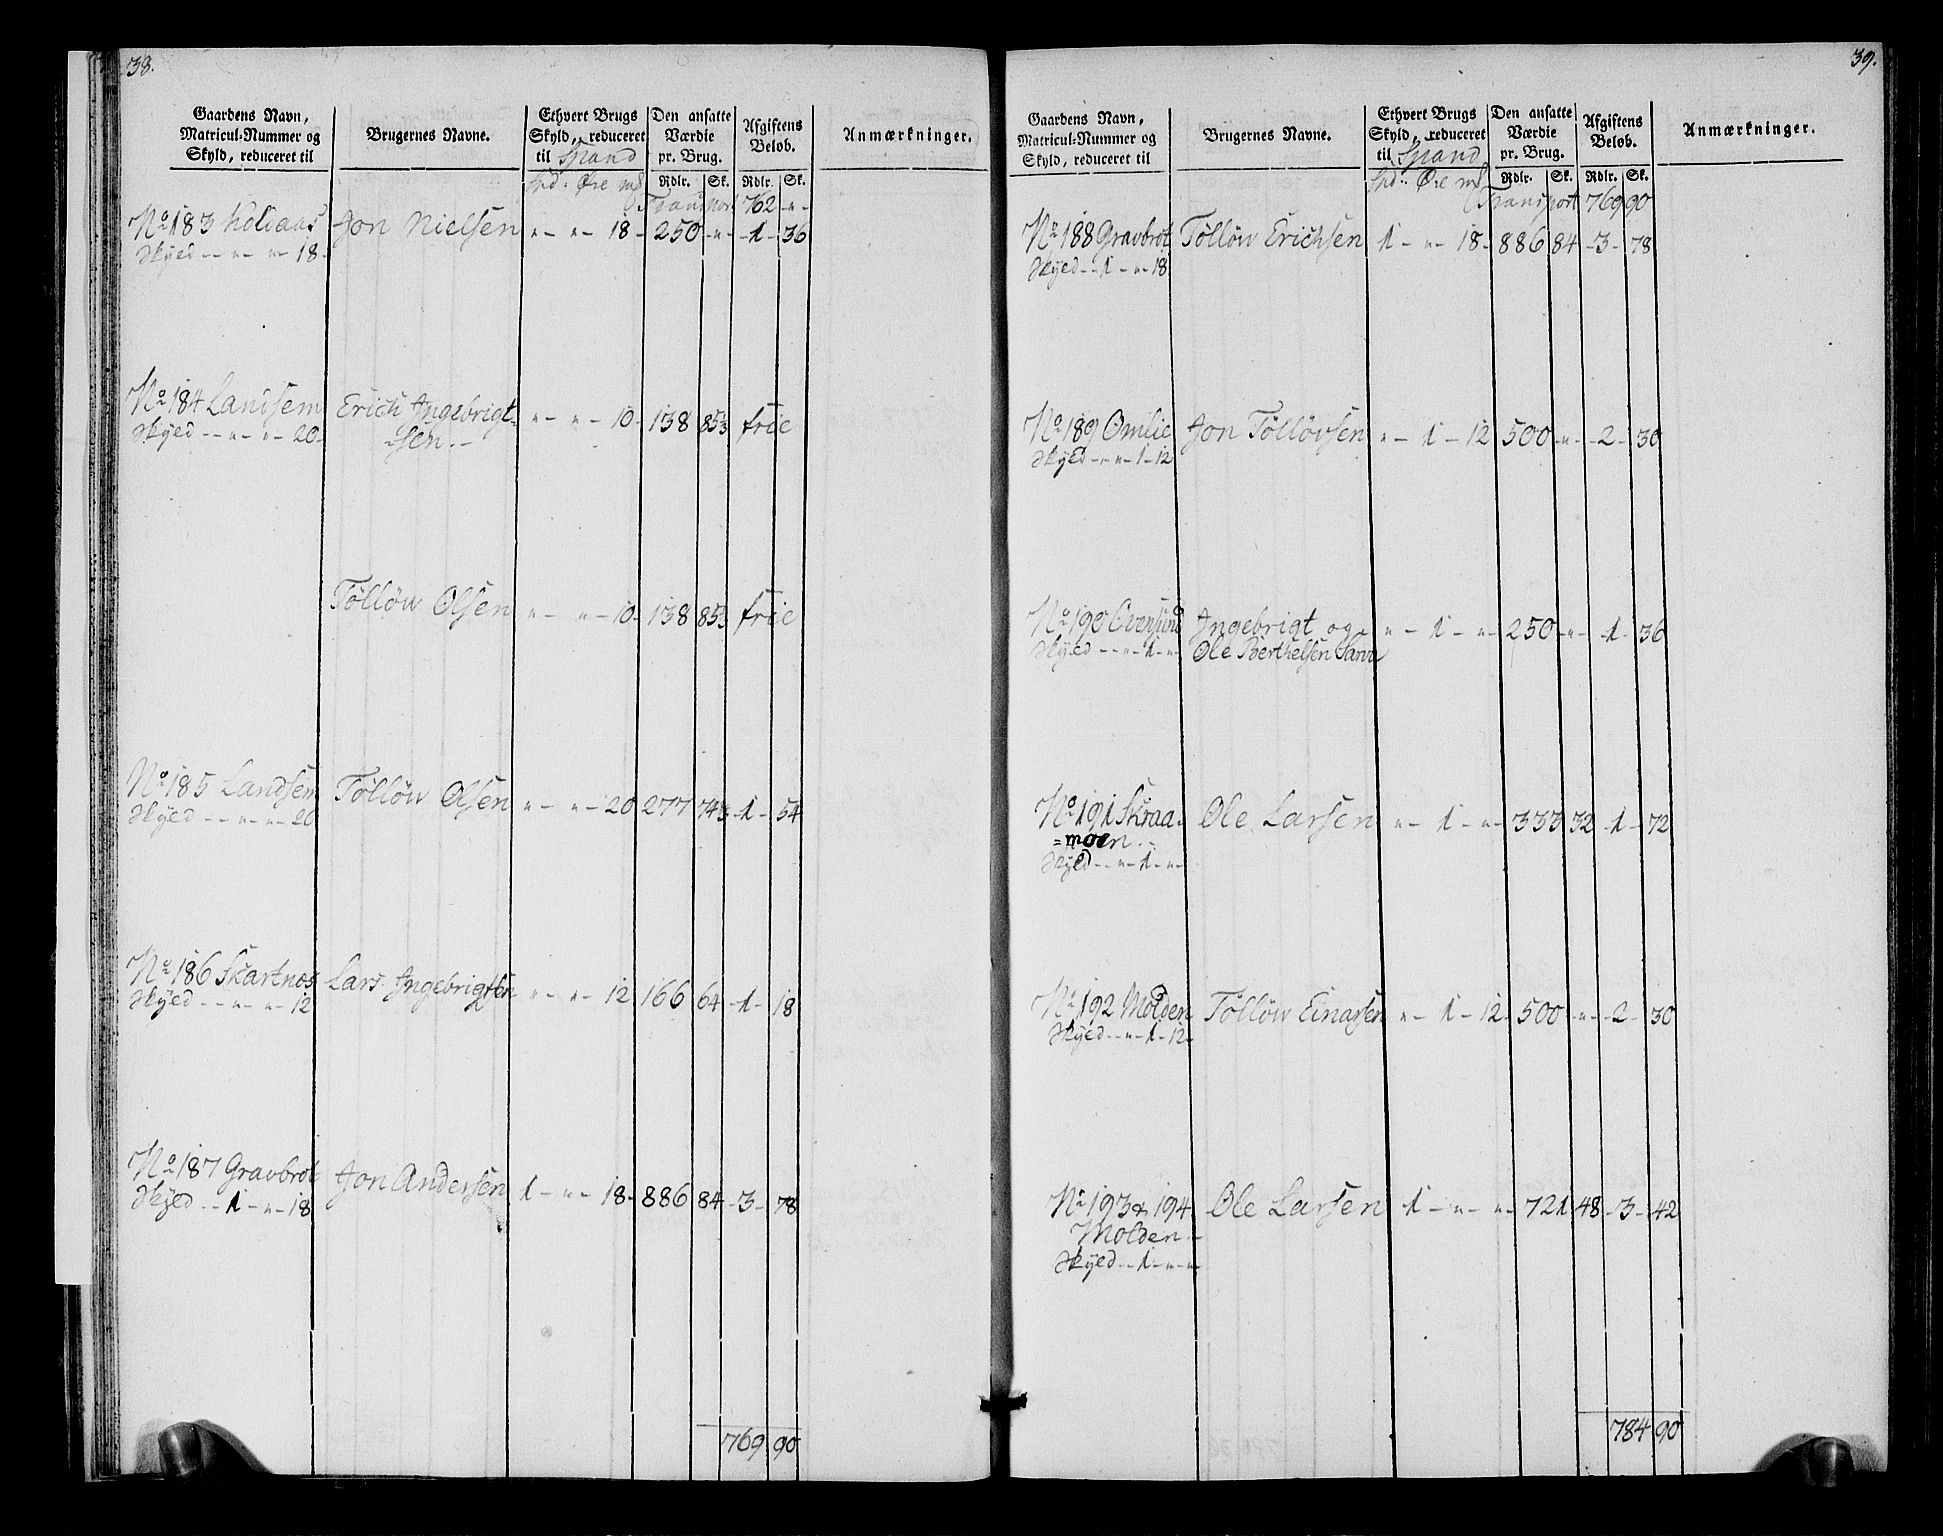 38.
Gaardens Navn,
Matricul-Nummer og
Skyld, reduceret til
Brugernes Navne.
Ethvert Brugs
Skyld, reduceret
til Spand
Den ansatte
Værdie
pr. Brug.
Afgiftens
Beløb.
Anmærkninger.
Spd. Øre mß Rdlr. Sk. Rdlr. Sk.
Transport 762 - "-
No 183 Kolaas Jon Nielsen "- "- 18- 250 -"- -1- 36
Skyed -- "- "- 18-
No 184 Landsem Erich Ingebrigt- "- "- 10- 138 85⅓ frie
Skyed -- "- "- 20- -sen.-
Tølløw Olsen "- "- 10- 138 85⅓ frie
No 185 Landsem Tølløw Olsen "- "- 20 277 74⅔ -1- 54
Skyed -- "- "- 20
No 186 Skartnæs Lars Ingebrigtsen "- "- 12 166 64 -1- 18
Skyed -- "- "- 12
No 187 Gravbrot Jon Andersen 1- "- 18- 886 84 -3- 78
Skyed -- 1- "- 18
769 90
39.
Gaardens Navn,
Matricul-Nummer og
Skyld, reduceret til
Brugernes Navne.
Ethvert Brugs
Skyld, reduceret
til Spand
Den ansatte
Værdie
pr. Brug.
Afgiftens
Beløb.
Anmærkninger.
Spd. Øre mß Rdlr. Sk. Rdlr. Sk.
Transport 769 90
No 188 Gravbrot Tølløw Erichsen 1- "- 18- 886 84 -3- 78
Skyed -- 1- "- 18
No 189 Omlie Jon Tølløvsen "- 1- 12 500 -"- -2- 30
Skyed -- "- 1- 12
No 190 Oversund Ingebrigt og "- 1- "- 250 -"- -1- 36
Skyed -- "- 1- "- Ole Berthelsen
No 191 Skraa- Ole Larsen "- 1- "- 333 32 -1- 72
=moen.-
Skyed -- "- 1- "-
No 192 Molden Tølløw Einarsen "- 1- 12- 500 -"- -2- 30
Skyed -- "- 1- 12-
No 193 & 194 Ole Larsen 1- "- "- 721 48 -3- 42
Molden -
Skyed -- 1- "- "-
784 90